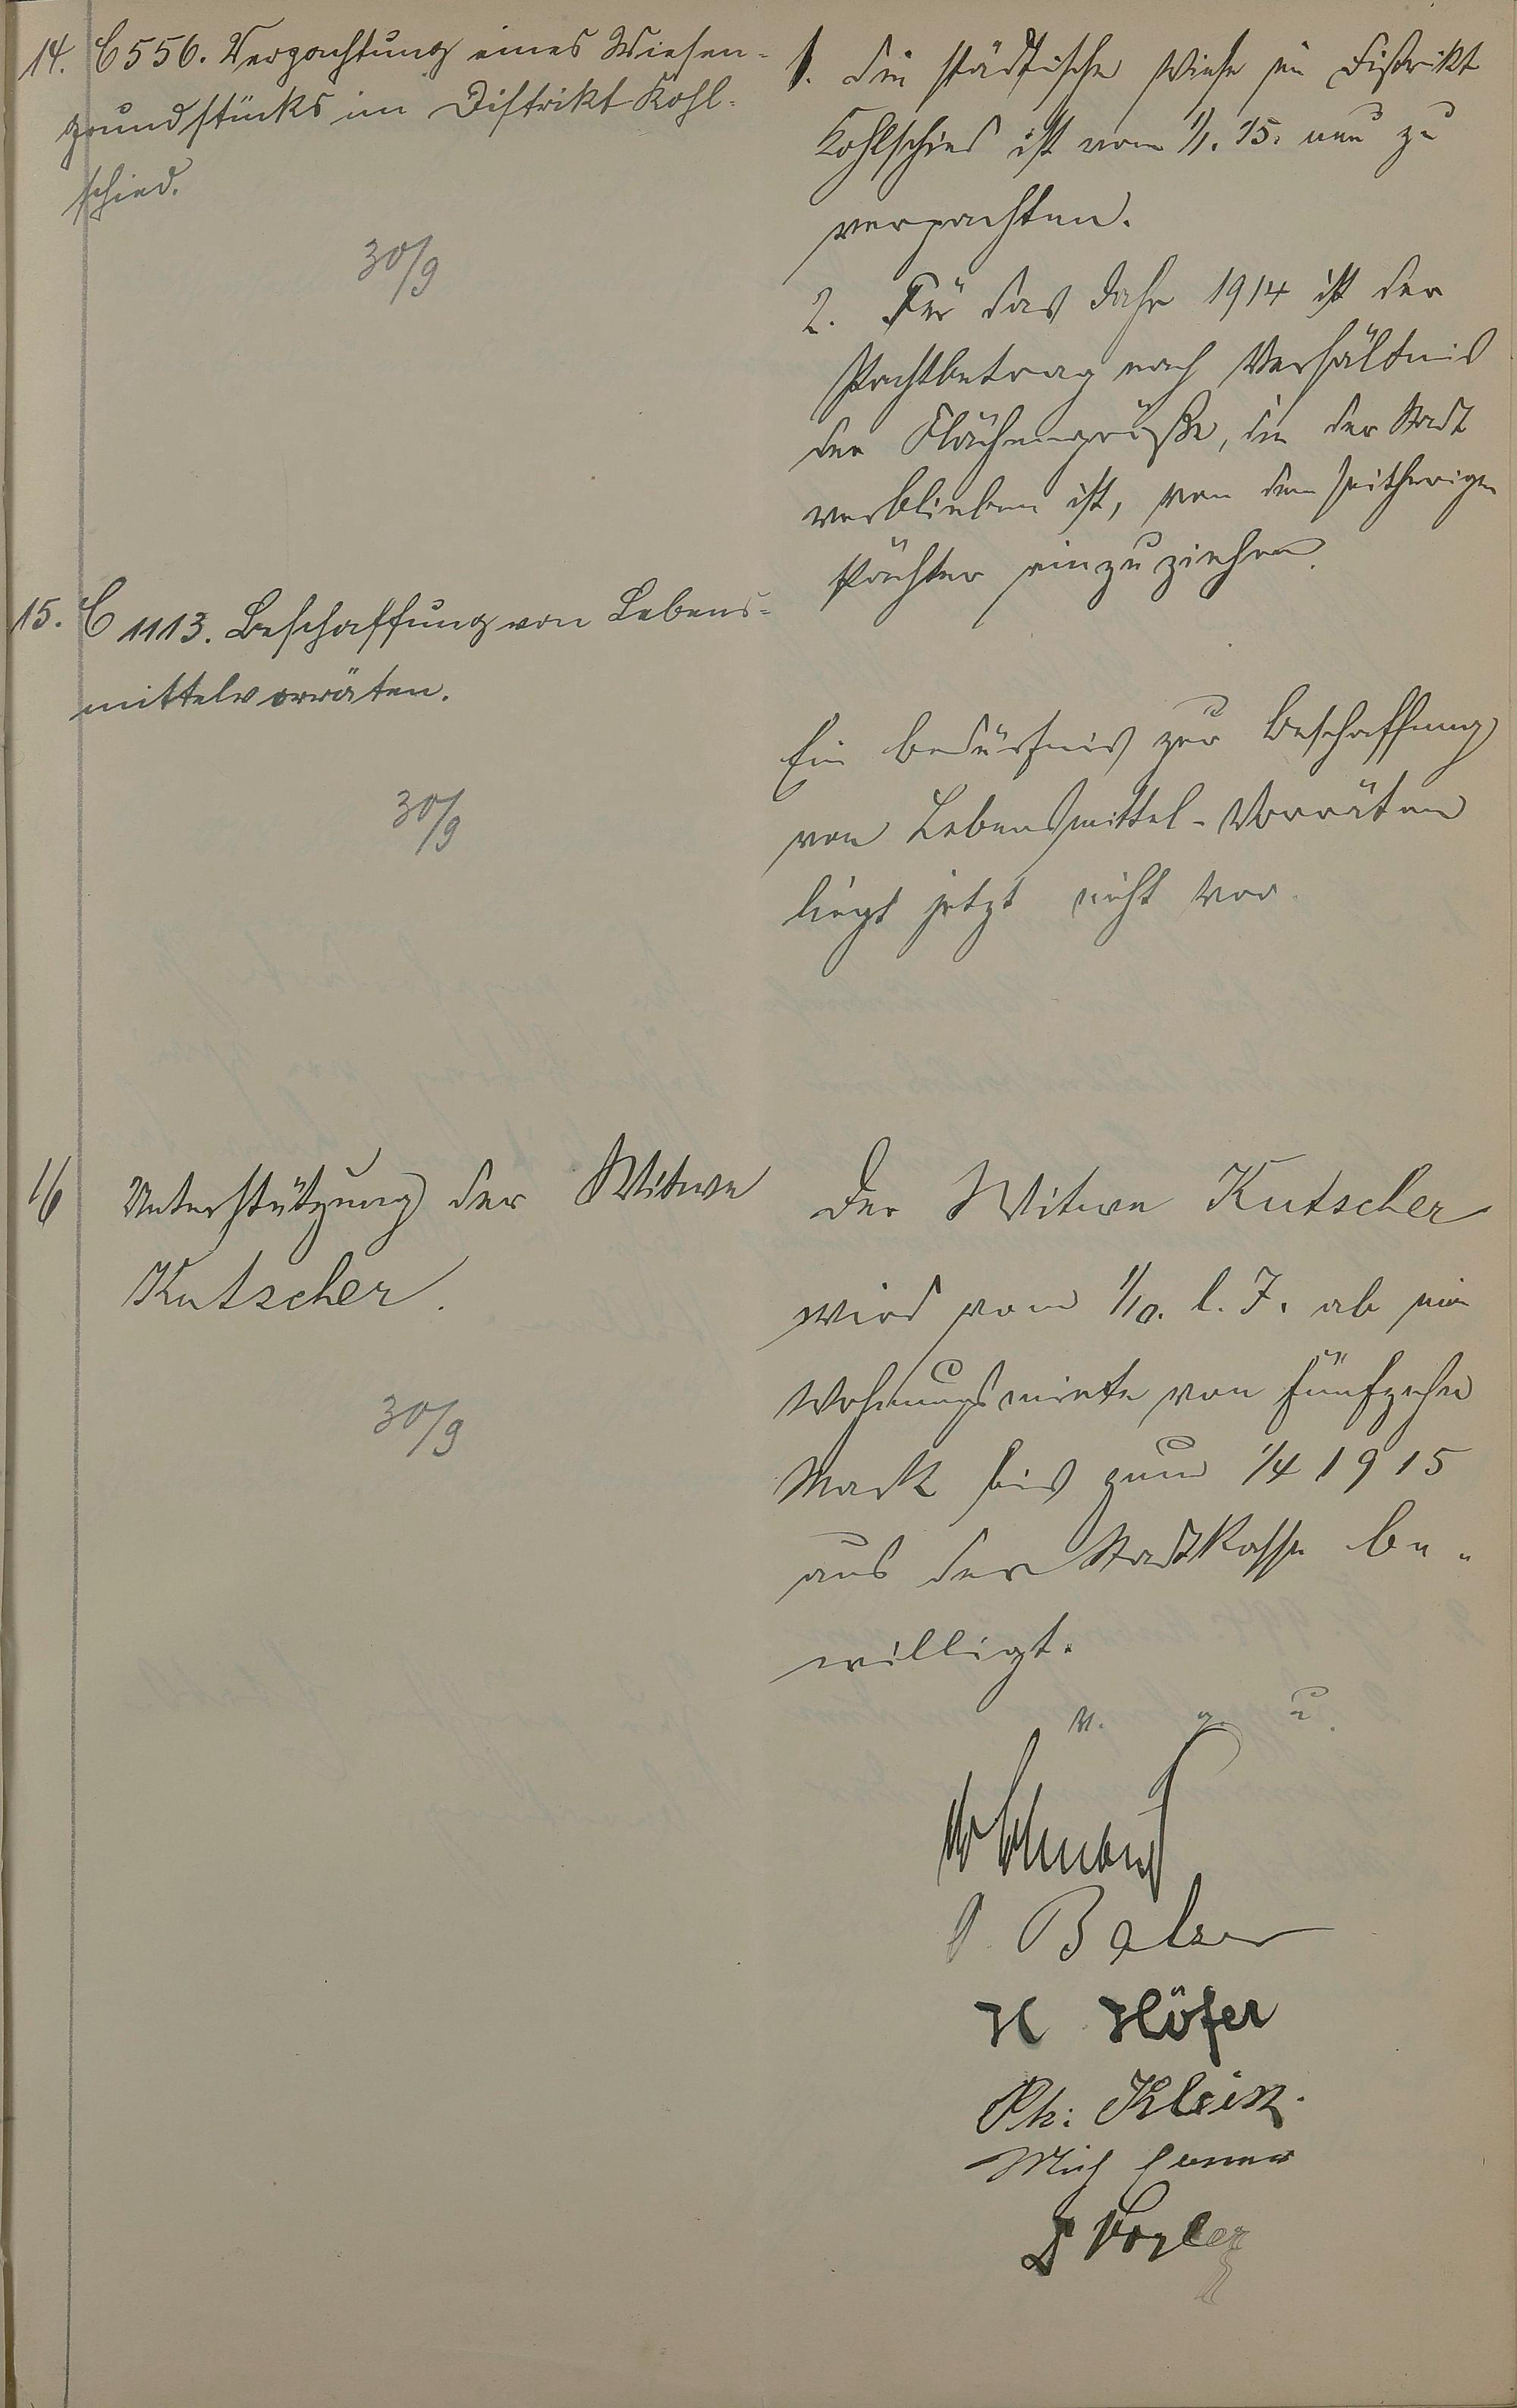 14. C 556. Verpachtung eines Wiesen-
grundstücks im Distrikt Kohl-
schied.
30/9
1. Die städtische Wiese im Distrikt
Kohlschied ist vom 1/1. 15. neu zu
verpachten.
2. Für das Jahr 1914 ist der
Pachtbetrag nach Verhältnis
der Flächengröße, die der Stadt
verblieben ist, von dem seitherigen
Pächter einzuziehen.
15. C 1113. Beschaffung von Lebens-
mittelvorräten.
30/9
Ein Bedürfnis zur Beschaffung
von Lebensmittel-Vorräten
liegt jetzt nicht vor.
16 Unterstützung der Witwe
Kutscher.
30/9
Der Witwe Kutscher
wird vom 1/10. l. J. ab eine
Wohnungsmiete von fünfzehn
Mark bis zum 1/4 1915
aus der Stadtkasse be-
willigt.
v. g. u.
Balzer
H Höfer
Ph. Klein.
Mich
Vogler